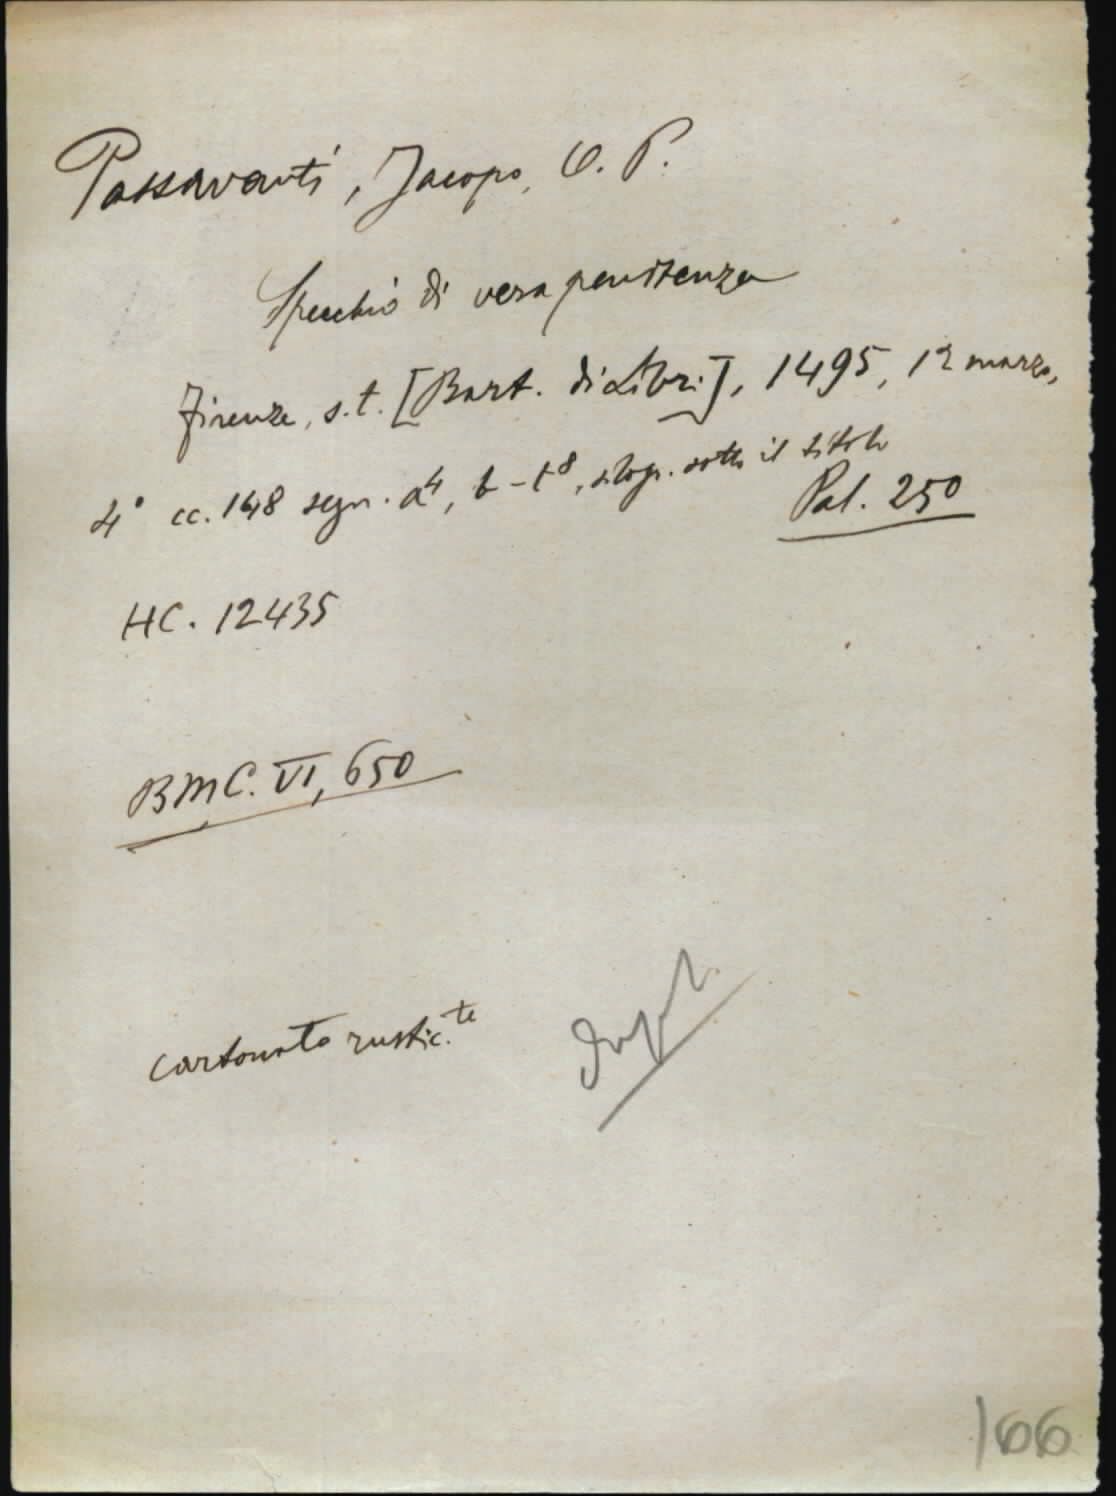 Passavanti, Jacopo, O. P.
Specchio di vera penitenza
Firenze, s.t. [Bart. di Libri], 1495, 12 marzo,
4° cc. 148 segn. a⁴, b-t⁸, silogr. sotto il titolo
Pal. 250
HC. 12435
BMC. VI, 650
cartonato rustic.te
Dupl.
166